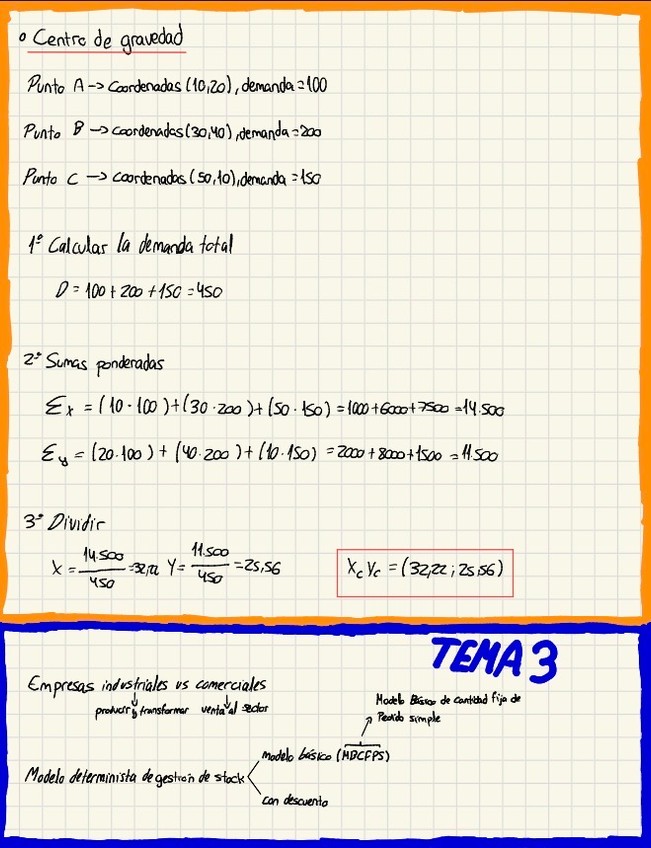 ° Centro de gravedad
Punto A -> Coordenadas (10,20), demanda = 100
Punto B -> coordenadas (30,40), demanda = 200
Punto C -> coordenadas (50,10), demanda = 150
1º Calcular la demanda total
D = 100 + 200 + 150 = 450
2º Sumas ponderadas
Σx = (10 · 100) + (30 · 200) + (50 · 150) = 1000 + 6000 + 7500 = 14.500
Σy = (20 · 100) + (40 · 200) + (10 · 150) = 2000 + 8000 + 1500 = 11.500
3º Dividir
X = 14.500 / 450 = 32,22 Y = 11.500 / 450 = 25,56
Xc Yc = (32,22 ; 25,56)
TEMA 3
Empresas industriales vs comerciales
producir y transformar venta al sector
Modelo Básico de cantidad fija de
Pedido simple
modelo básico (MBCFPS)
Modelo determinista de gestión de stock
con descuento